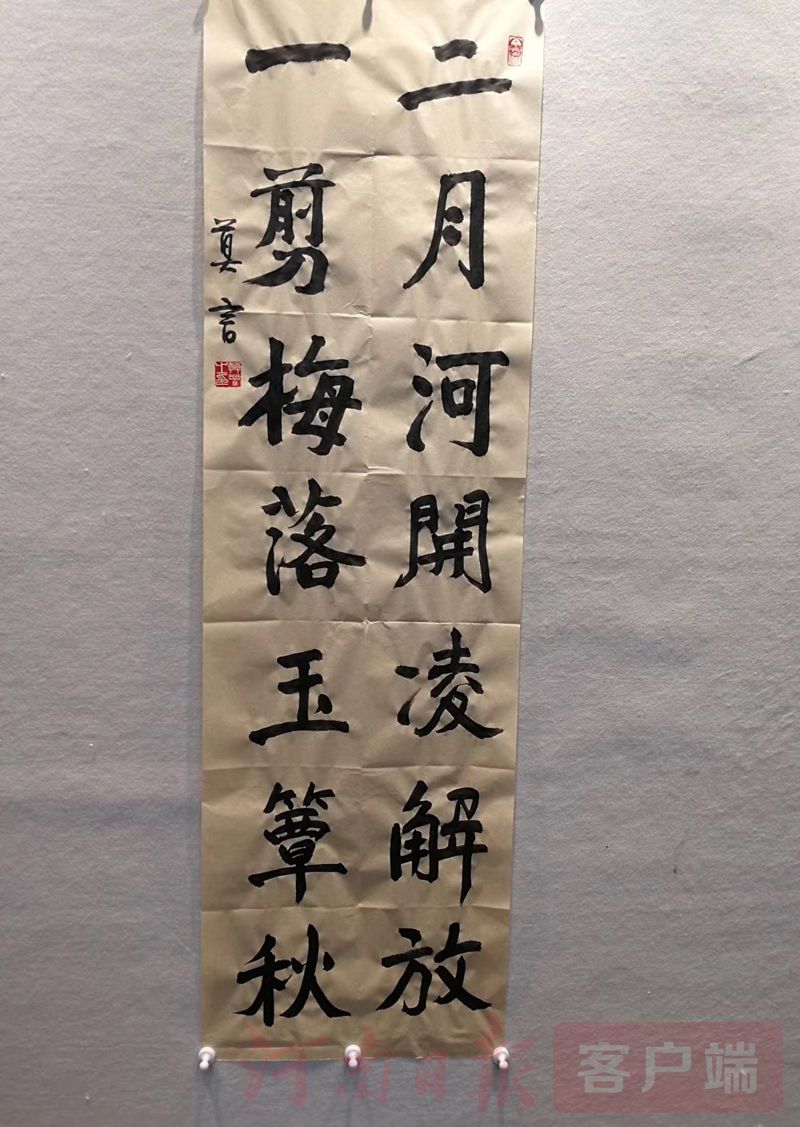 二月河開凌解放
一剪梅落玉簟秋
莫言
河南日报 客户端